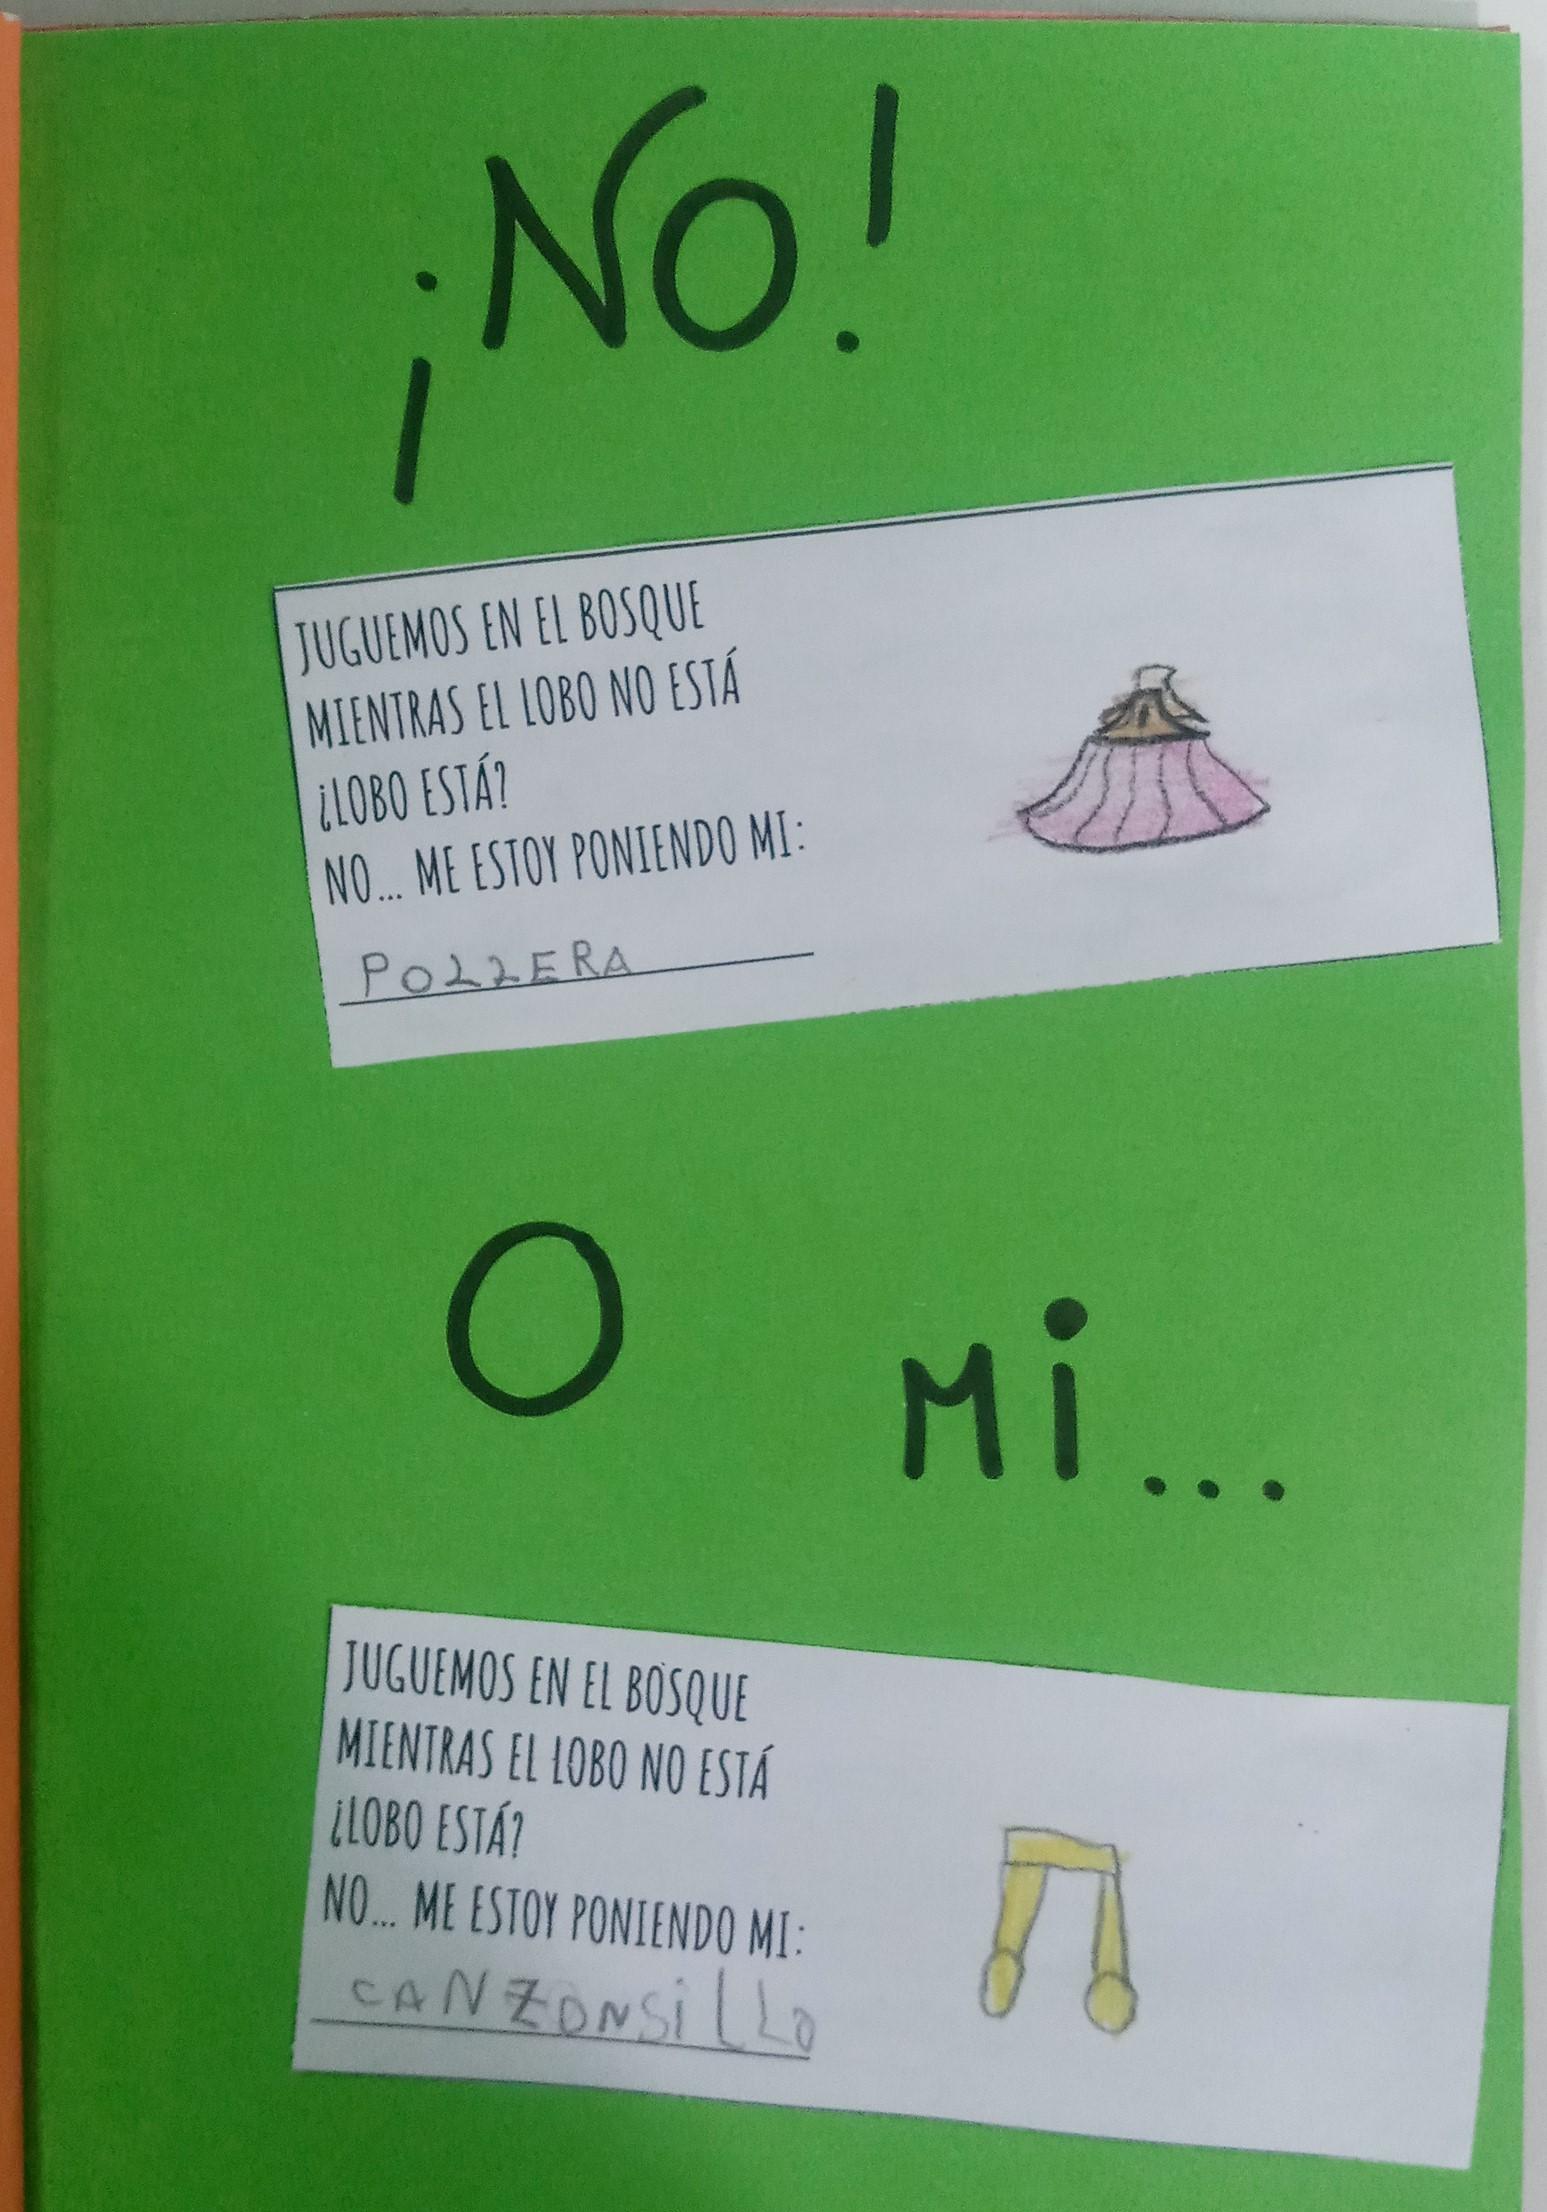 ¡NO!
JUGUEMOS EN EL BOSQUE
MIENTRAS EL LOBO NO ESTÁ
¿LOBO ESTÁ?
NO... ME ESTOY PONIENDO MI:
POLLERA
O MI...
JUGUEMOS EN EL BOSQUE
MIENTRAS EL LOBO NO ESTÁ
¿LOBO ESTÁ?
NO... ME ESTOY PONIENDO MI:
CANZONSiLLO